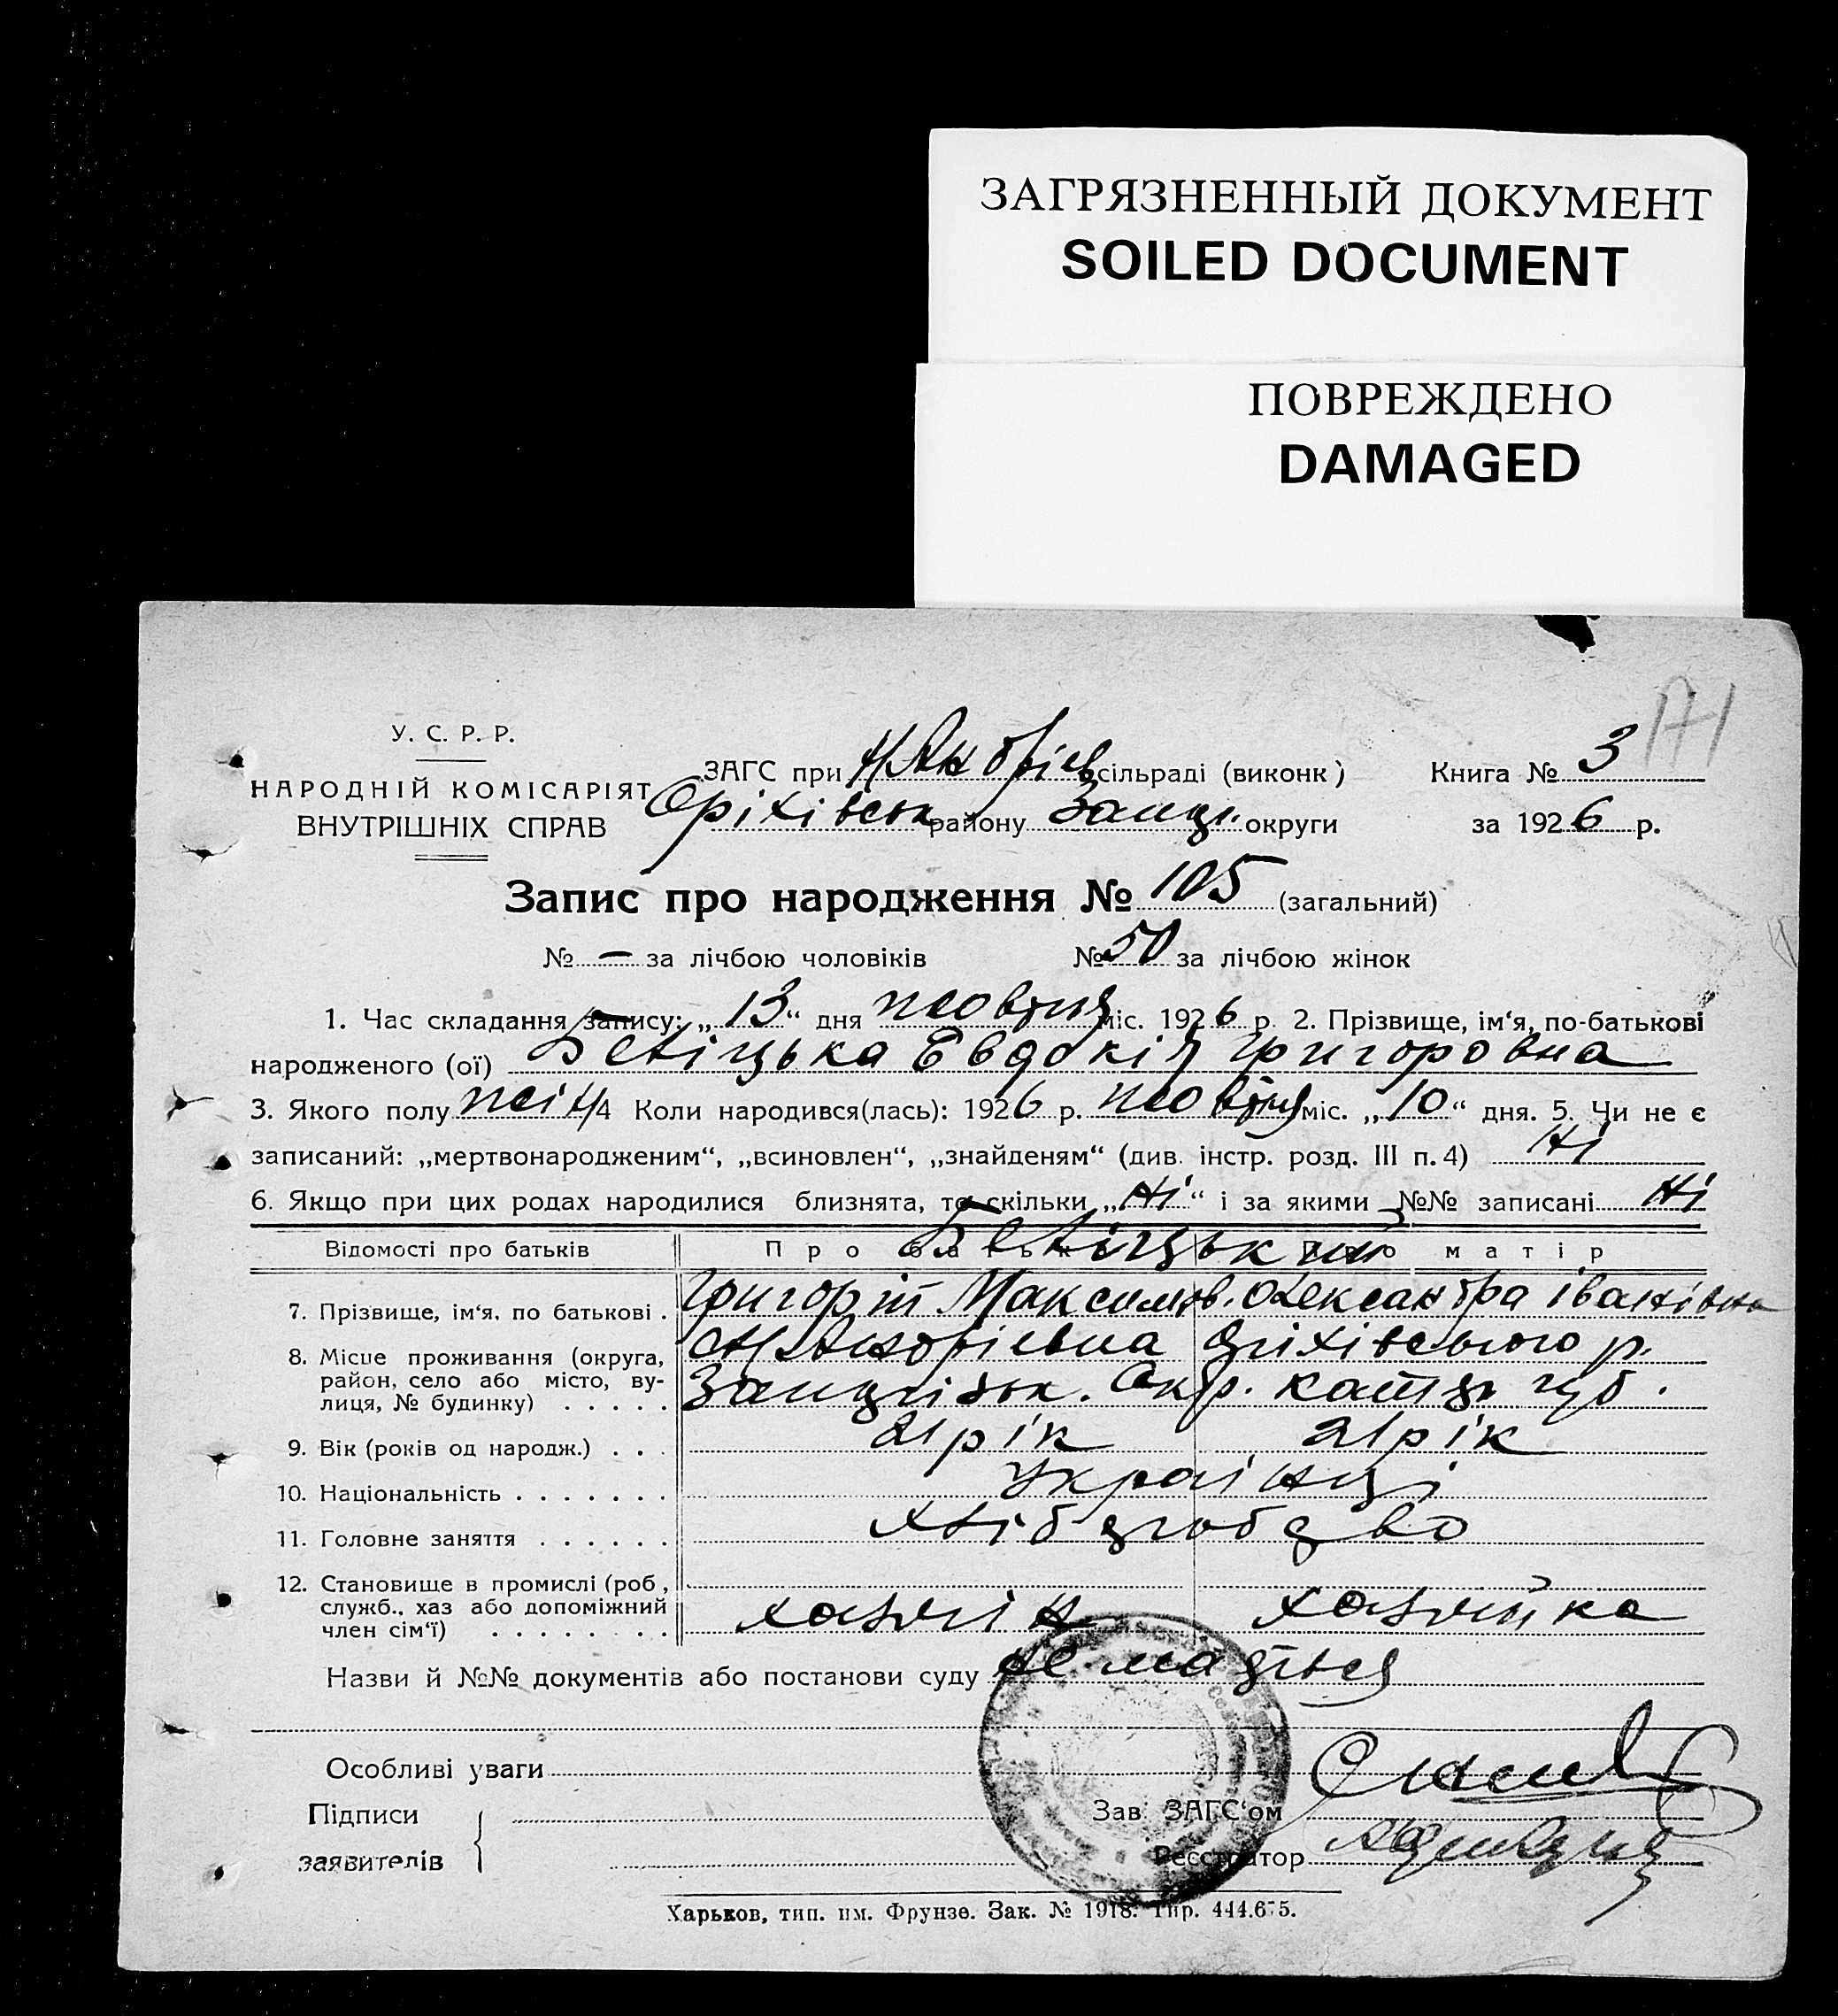 ЗАГРЯЗНЕННЫЙ ДОКУМЕНТ
SOILED DOCUMENT
ПОВРЕЖДЕНО
DAMAGED
171
У. С. Р. Р.
НАРОДНІЙ КОМІСАРІЯТ
ВНУТРІШНІХ СПРАВ
ЗАГС при сільраді (виконк) Книга № 3
Оріхівськ району Запор. округи за 1926 р.
Запис про народження № 105 (загальний)
№ — за лічбою чоловіків № 50 за лічбою жінок
1. Час складання запису: „13“ дня жовтня міс. 1926 р. 2. Прізвище, ім‘я, по-батькові
народженого (ої) Білицька Евдокія Григоровна
3. Якого полу жін. 4 Коли народився(лась): 1926 р. жовтня міс. „10“ дня. 5. Чи не є
записаний: „мертвонародженим“, „всиновлен“, „знайденям“ (див. інстр. розд. III п. 4) Ні
6. Якщо при цих родах народилися близнята, то скільки „Ні“ і за якими №№ записані Ні
Відомості про батьків Про батька Про матір
7. Прізвище, ім‘я, по батькові . Григорій Максимов. Олександра Іванівна
8. Місце проживання (округа, Оріхівського р.
район, село або місто, ву-
лиця, № будинку) . . . . . Окр. Катер. губ.
9. Вік (років од народж.) . . . 21 рік 21 рік
10. Національність . . . . . . . Українці
11. Головне заняття . . . . . . хліборобство
12. Становище в промислі (роб,
служб., хаз або допоміжний
член сім‘ї) . . . . . . . . хазяін хазяйка
Назви й №№ документів або постанови суду не мається
Особливі уваги
Підписи
заявителів
Зав. ЗАГС‘ом
Реєстратор
Харьков, тип. им. Фрунзе. Зак. № 1918. Тир. 444.675.